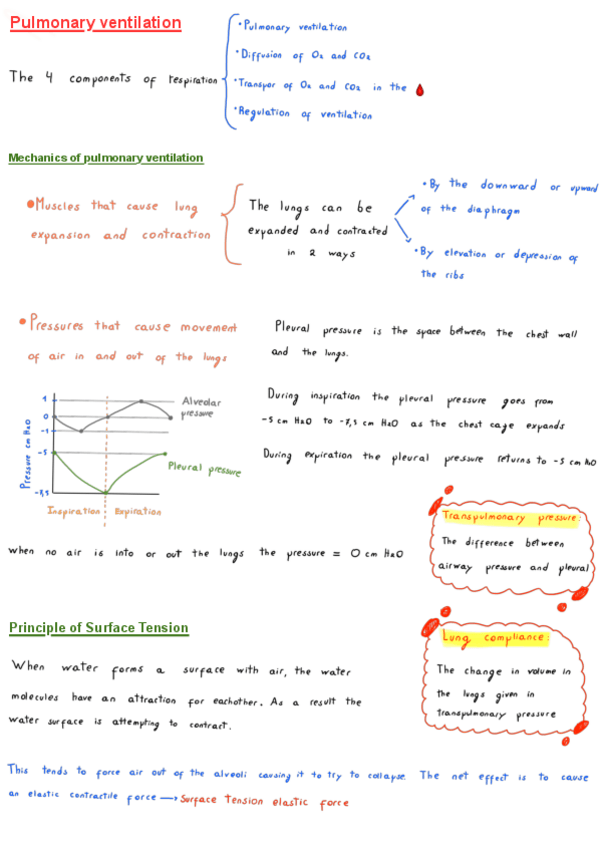 Pulmonary ventilation
The 4 components of respiration
• Pulmonary ventilation
• Diffusion of O2 and CO2
• Transpor of O2 and CO2 in the
• Regulation of ventilation
Mechanics of pulmonary ventilation
• Muscles that cause lung
expansion and contraction
The lungs can be
expanded and contracted
in 2 ways
• By the downward or upward
of the diaphragm
• By elevation or depression of
the ribs
• Pressures that cause movement
of air in and out of the lungs
Pleural pressure is the space between the chest wall
and the lungs.
During inspiration the pleural pressure goes from
-5 cm H2O to -7,5 cm H2O as the chest cage expands
During expiration the pleural pressure returns to -5 cm h2O
Pressure cm H2O
1
0
-1
-5
-7,5
Alveolar
pressure
Pleural pressure
Inspiration Expiration
when no air is into or out the lungs the pressure = 0 cm H2O
Transpulmonary pressure:
The difference between
airway pressure and pleural
Principle of Surface Tension
When water forms a surface with air, the water
molecules have an attraction for eachother. As a result the
water surface is attempting to contract.
Lung compliance:
The change in volume in
the lungs given in
transpulmonary pressure
This tends to force air out of the alveoli causing it to try to collapse. The net effect is to cause
an elastic contractile force → Surface Tension elastic force